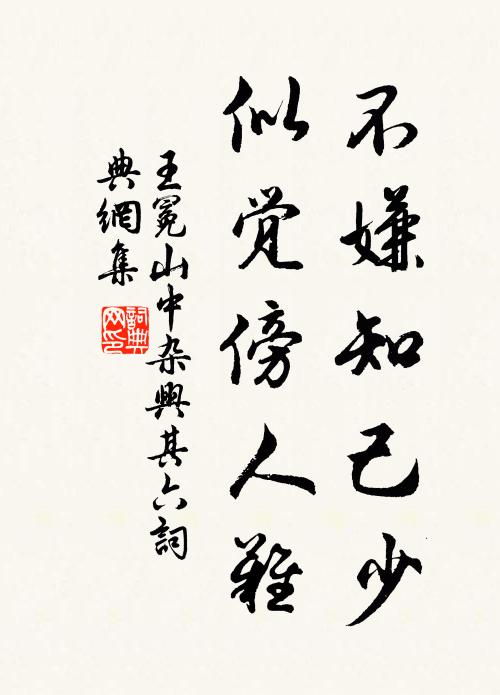 不嫌知己少
似觉傍人难
王冕山中杂興其六詞
典網集
詞典
网印